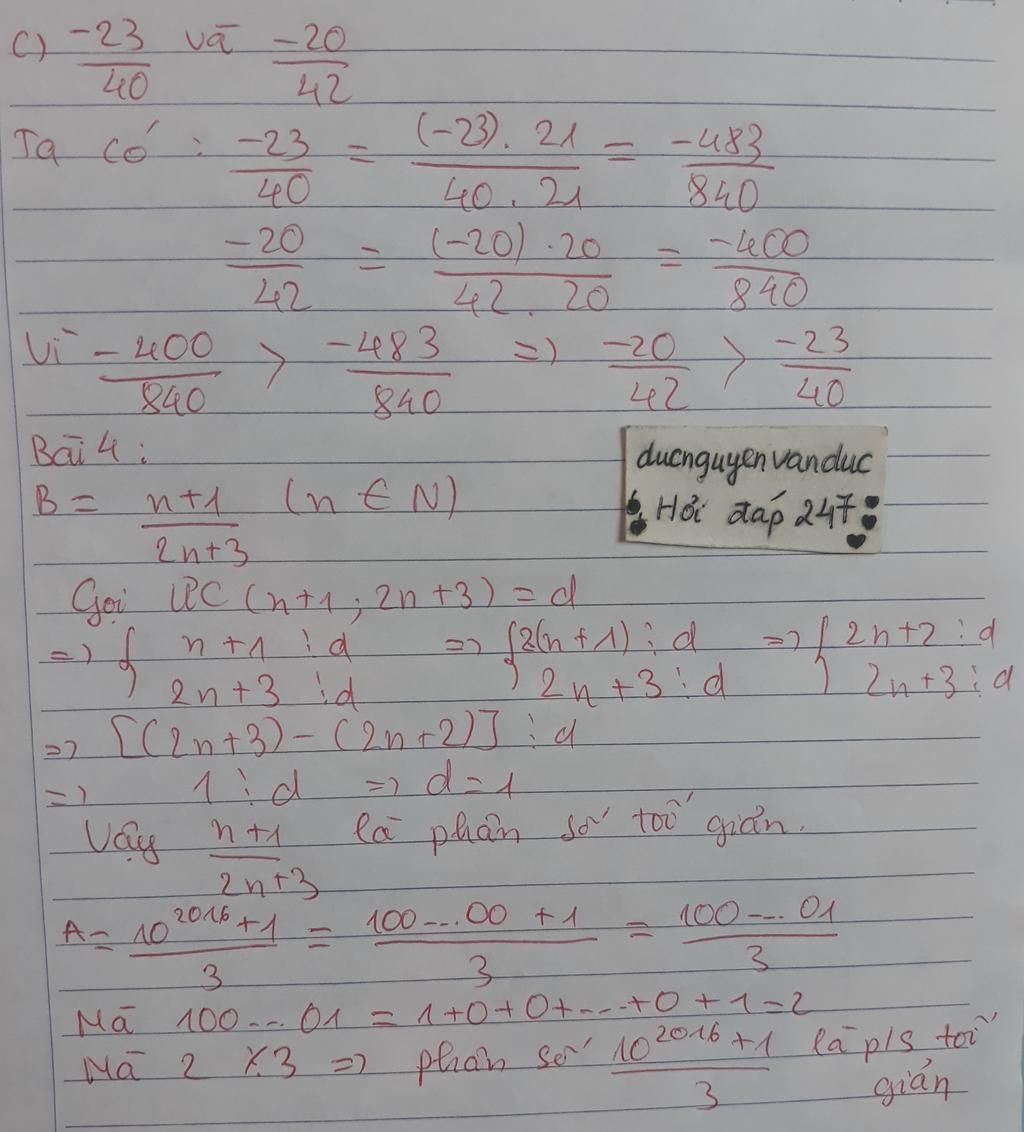 c) -23/40 và -20/42
Ta có : -23/40 = (-23). 21/40 . 21 = -483/840
-20/42 = (-20) . 20/42 . 20 = -400/840
Vì -400/840 > -483/840 => -20/42 > -23/40
Bài 4 :
ducnguyenvanduc
Hỏi đáp 247
B = n+1/2n+3 (n ∈ N)
Gọi ƯC (n+1 ; 2n+3) = d
=> { n+1 ⋮ d => { 2(n+1) ⋮ d => { 2n+2 ⋮ d
2n+3 ⋮ d 2n+3 ⋮ d 2n+3 ⋮ d
=> [(2n+3) - (2n+2)] ⋮ d
=> 1 ⋮ d => d = 1
Vậy n+1/2n+3 là phân số tối giản.
A = 10^2016 + 1/3 = 100...00 + 1/3 = 100...01/3
Mà 100...01 = 1+0+0+...+0+1 = 2
Mà 2 ⋮̸ 3 => phân số 10^2016 + 1/3 là p/s tối
giản